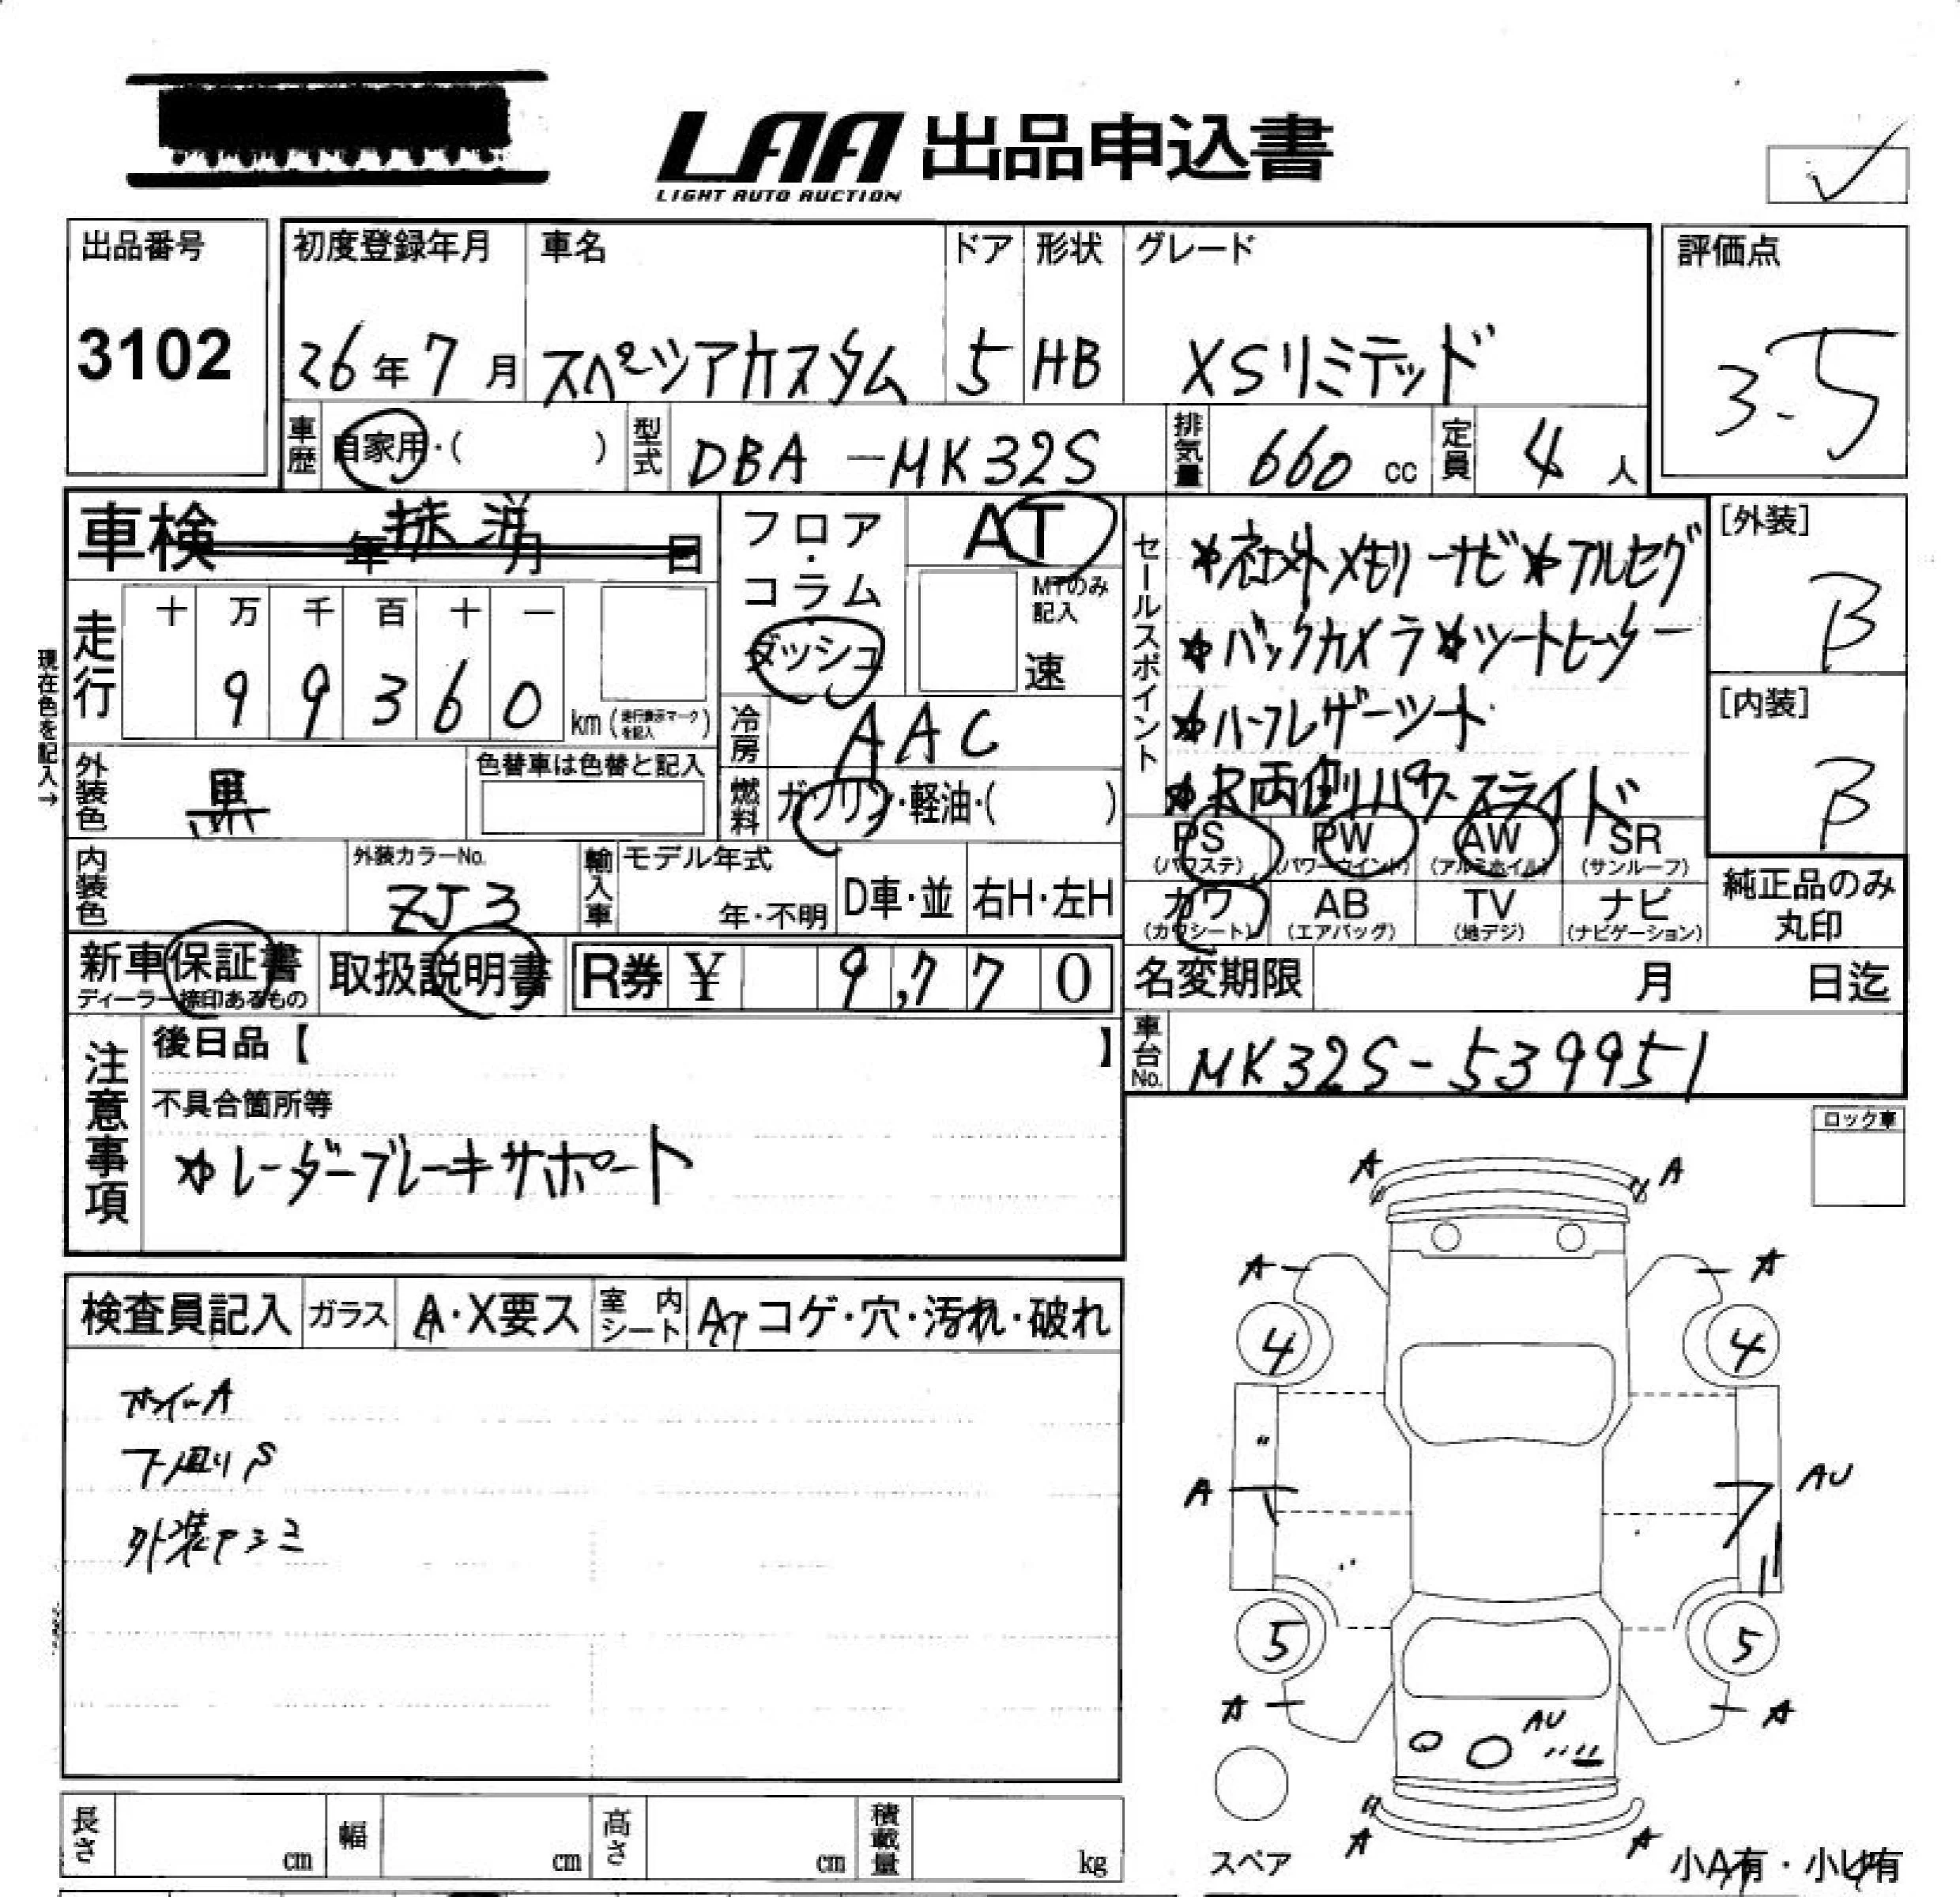 LAA 出品申込書
LIGHT AUTO AUCTION
出品番号
3102
初度登録年月
26年7月
車名
スペーシアカスタム
ドア
5
形状
HB
グレード
XSリミテッド
評価点
3.5
車歴
自家用・( )
型式
DBA-MK32S
排気量
660 cc
定員
4 人
車検 年 月 日
抹消
フロア・コラム・ダッシュ
AT
MTのみ記入
速
走行
十 万 千 百 十 一
9 9 3 6 0
km (走行表示マークを記入)
現在色を記入→
冷房
AAC
外装色
黒
色替車は色替と記入
燃料
ガソリン・軽油・( )
内装色
外装カラーNo.
ZJ3
輸入車
モデル年式
年・不明
D車・並
右H・左H
新車保証書
ディーラー捺印あるもの
取扱説明書
R券 ¥ 9,770
セールスポイント
☆社外メモリーナビ☆フルセグ
☆バックカメラ☆シートヒーター
☆ハーフレザーシート
☆R両側パワースライド
[外装]
B
[内装]
B
PS PW AW SR
(パワステ) (パワーウインド) (アルミホイル) (サンルーフ)
カワ AB TV ナビ
(カワシート) (エアバッグ) (地デジ) (ナビゲーション)
純正品のみ
丸印
名変期限 月 日迄
車台No.
MK32S-539951
注意事項
後日品【 】
不具合箇所等
☆レーダーブレーキサポート
ロック車
検査員記入
ガラス
A・X要ス
室内シート
コゲ・穴・汚れ・破れ
ホイールA
下廻りS
外装
A A
A A
4 4
A AU
5 5
A A
AU
A A
スペア
小A有・小U有
長さ cm
幅 cm
高さ cm
積載量 kg